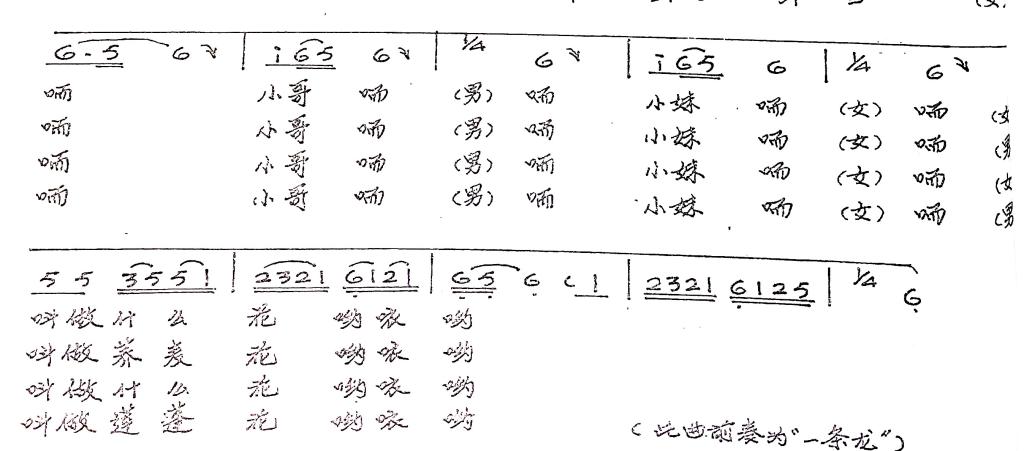 6·5 6 | i 65 6 | 1/4 6 | i 65 6 | 1/4 6
哂 小哥 哂 (男) 哂 小妹 哂 (女) 哂 (女
哂 小哥 哂 (男) 哂 小妹 哂 (女) 哂 (男
哂 小哥 哂 (男) 哂 小妹 哂 (女) 哂 (女
哂 小哥 哂 (男) 哂 小妹 哂 (女) 哂 (男
5 5 3551 | 2321 6121 | 65 6 (1 | 2321 6125 | 1/4 6
叫做什么 花 哟咳 哟
叫做荞麦 花 哟咳 哟
叫做什么 花 哟咳 哟
叫做莲蓬 花 哟咳 哟
(此曲前奏为“一条龙”)